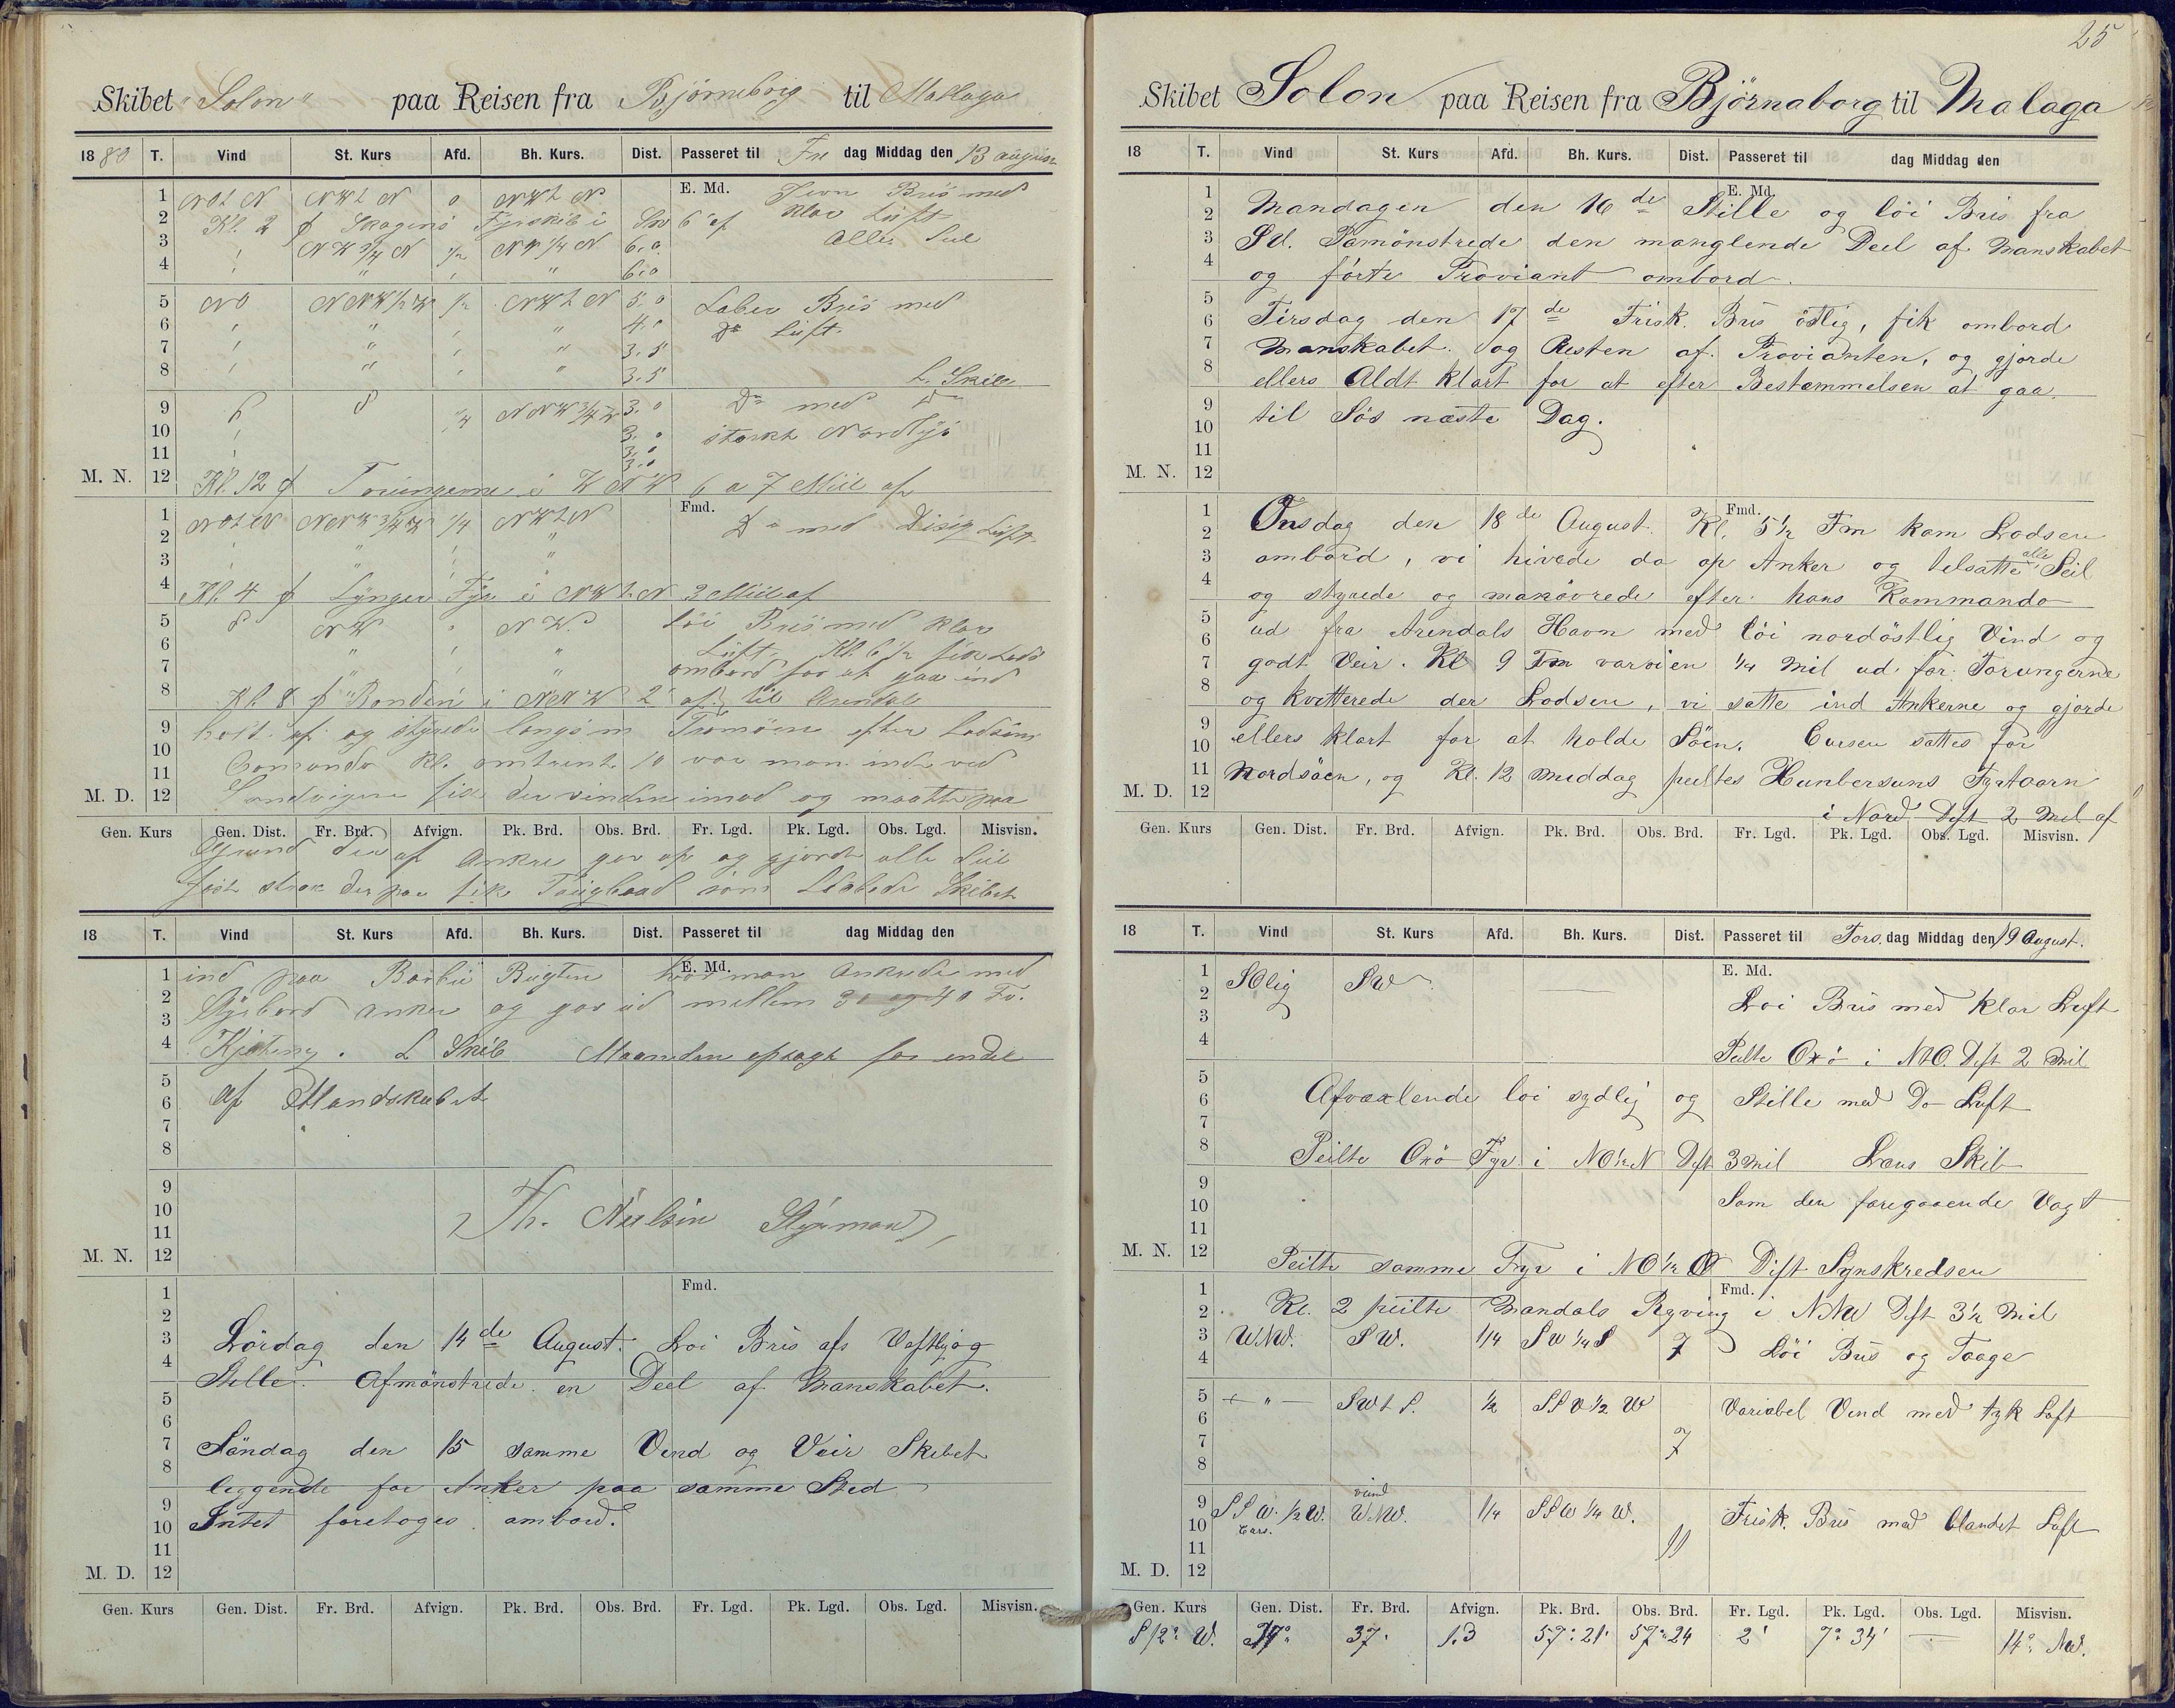 Skibet "Solon" paa Reisen fra Bjørneborg til Mallaga
1880 T. Vind St. Kurs Afd. Bh. Kurs. Dist. Passeret til Fre dag Middag den 13 august
1 NOtN NWtN 0 NWtN E. Md. Jevn Bris med
2 Kl. 2 p Skagens Fyrskib i SW 6" af klar Luft
3 NW 3/4 N 1/2 NW 1/4 N 6.0 Alle Seil
4 " 6.0
5 NO NNW 1/2 W 1/2 NWtN 5.0 Laber Bris med
6 " " 4.0 Do Luft
7 " " 3.5
8 " " 3.5 L. Skib
9 1/4 NNW 3/4 W 3.0 Do med Do
10 3.0 stærkt Nordlys
11 3.0
M. N. 12 3.0 Kl. 12 p Torungerne i WNW 6 a 7 Miil af
1 NOtN NNW 3/4 W 1/4 NWtN Fmd. Do med Disig Luft
2 " "
3 " "
4 Kl. 4 p Lyngør Fyr i NWtN 3 Miil af
5 NW NW. Løi Bris med klar
6 " " Luft. Kl. 6 1/2 fik Lods
7 " " ombord for at gaa ind
8 Kl. 8 p "Ronden" i NNW 2" af til Arendal
9 holt af og styrede langs m Tromøen efter Lodsens
10 Comando Kl. omtrent 10 var man inde ved
11 Sandvigen fik der vinden imod og maatte paa
M. D. 12
Gen. Kurs Gen. Dist. Fr. Brd. Afvign. Pk. Brd. Obs. Brd. Fr. Lgd. Pk. Lgd. Obs. Lgd. Misvisn.
Grund der af Ankre gav op og gjorde alle Seil
fast strax der paa fik Taugbaad som Slæbede Skibet
18 T. Vind St. Kurs Afd. Bh. Kurs. Dist. Passeret til dag Middag den
1 ind paa Barbu Bugten E. Md. hvor man Ankrede med
2 Styrbord anker og gav ud mellem 30 og 40 Fv.
3
4 Kjetting. L Skib Maanden optagt for endel
5 af Mandskabet
6
7
8
9
10 Th. Nielsen Styrmand
11
M. N. 12
1 Fmd.
2
3 Lördag den 14de August. Loi Bris afs Vestlig og
4 Stille. Afmönstrede en Deel af Manskabet.
5
6
7 Söndag den 15 samme Vind og Veir Skibet
8 liggende for Anker paa samme Sted
9
10 Intet foretoges ombord.
11
M. D. 12
Gen. Kurs Gen. Dist. Fr. Brd. Afvign. Pk. Brd. Obs. Brd. Fr. Lgd. Pk. Lgd. Obs. Lgd. Misvisn.
25
Skibet Solon paa Reisen fra Björnaborg til Malaga
18 T. Vind St. Kurs Afd. Bh. Kurs. Dist. Passeret til dag Middag den
1 E. Md.
2 Mandagen den 16de Stille og löi Bris fra
3 SV. Paamönstrede den manglende Deel af Manskabet
4 og förte Proviant ombord.
5
6 Tirsdag den 17de Frisk Bris östlig, fik ombord
7 Manskabet og Resten af Provianten, og gjorde
8 ellers Aldt klart for at efter Bestemmelsen at gaa
9 til Sös næste Dag.
10
11
M. N. 12
1 Fmd.
2 Onsdag den 18de August. Kl. 5 1/2 Fm kom Lodsen
3 ombord, vi hivede da op Anker og tilsatte alle Seil
4 og styrede og manövrede efter hans Kommando
5 ud fra Arendals Havn med löi nordöstlig Vind og
6
7 godt Veir. Kl 9 Fm var vi en 1/4 Mil ud for Torungerne
8 og kvitterede der Lodsen, vi satte ind Ankerne og gjorde
9
10 ellers klart for at holde Söen. Cursen sattes for
11 Nordsöen, og Kl. 12 Middag peiltes Hunbersuns Fyrtaarn
M. D. 12 i Nord Dist 2 Mil af
Gen. Kurs Gen. Dist. Fr. Brd. Afvign. Pk. Brd. Obs. Brd. Fr. Lgd. Pk. Lgd. Obs. Lgd. Misvisn.
18 T. Vind St. Kurs Afd. Bh. Kurs. Dist. Passeret til Tors. dag Middag den 19 August.
1 SOlig SW E. Md.
2 Loi Bris med klar Luft
3
4 Peilte Oxö i NtO. Dist 2 Mil
5
6 Afvaxlende loi sydlig og Stille med Do Luft
7
8 Peilte Oxö Fyr i NO 1/2 N Dist 3 Mil Læns Skib
9
10 Som den foregaaende Vagt
11
M. N. 12 Peilte samme Fyr i NO 1/2 O Dist Synskredsen
1 Fmd.
2 Kl. 2 peilte Mandals Ryving i NNW Dist 3 1/2 Mil
3 WNW. SW. 1/4 SW 1/4 S 7 Löi Bris og Taage
4
5 " SWtS. 1/2 SSW 1/2 W Variabel Vind med tyk Luft
6
7 7
8
9 SSW. 1/2 W. Curs. Vind WNW. 1/4 SSW 1/4 W. Frisk Bris med blandet Luft
10
11 11
M. D. 12
Gen. Kurs Gen. Dist. Fr. Brd. Afvign. Pk. Brd. Obs. Brd. Fr. Lgd. Pk. Lgd. Obs. Lgd. Misvisn.
S 12° W. 37' 1.3 57° 21' 57° 24 2' 7° 34' 14° NW.